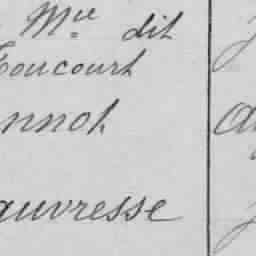 Mie dit
Toucourt
nnot
auvresse